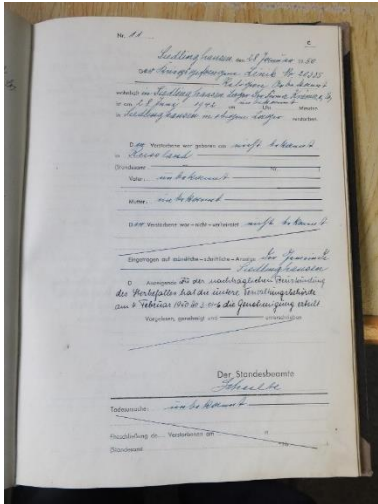 Nr. 11
C
Siedlinghausen, am 28. Januar 1950
Der Kriegsgefangene Nr
wohnhaft in Siedlinghausen Lager
ist am 18. Juni 1942 um Uhr Minuten
in Siedlinghausen im Lager verstorben.
D er Verstorbene war geboren am nicht bekannt
in Russland
(Standesamt Nr. )
Vater: unbekannt
Mutter: unbekannt
D er Verstorbene war – nicht – verheiratet nicht bekannt
Eingetragen auf mündliche – schriftliche – Anzeige der Gemeinde
Siedlinghausen
D Anzeigende Zu der nachträglichen Beurkundung
des Sterbefalles hat die untere Verwaltungsbehörde
am Februar 1950 die Genehmigung erteilt
Vorgelesen, genehmigt und unterschrieben
Der Standesbeamte
Todesursache: unbekannt
Eheschließung de Verstorbenen am in
(Standesamt